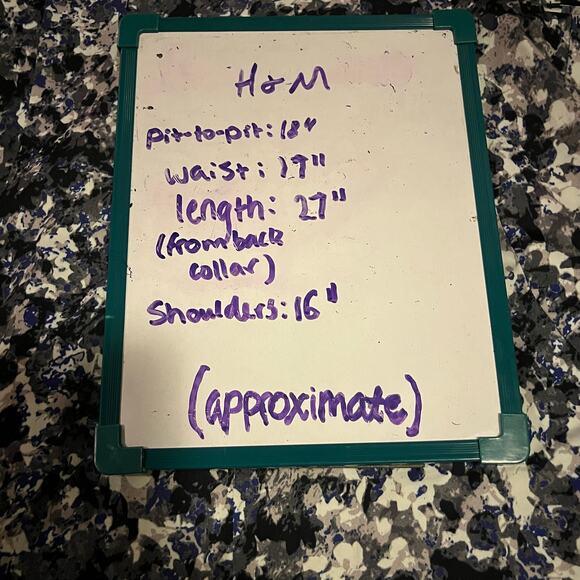 H&M
pit-to-pit: 18"
waist: 17"
length: 27"
(from back
collar)
Shoulders: 16"
(approximate)